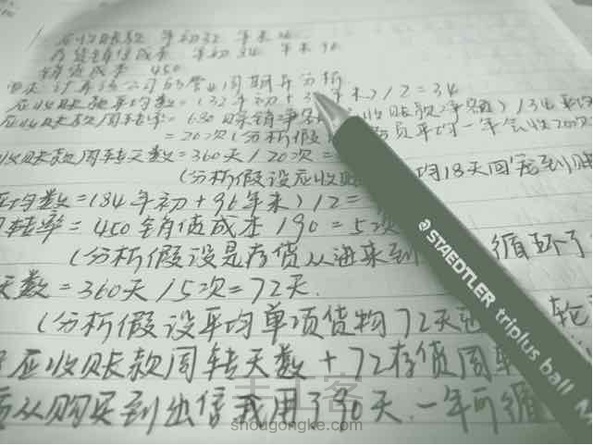 应收账款 年初32 年末36
存货 年初84 年末96
销售成本 450
要求 计算该公司的营业周期并分析.
应收账款平均数=(32年初+36年末)/2=34
应收账款周转率=680 /34
=20次(分析假 平均一年会收20次
收账款周转天数=360天/20次=
(分析假设应收账 均18天回笼到账
平均数=(84年初+96年末)/2=
周转率=450销售成本/90=5次
(分析假设是存货从进来到 循环了
天数=360天/5次=72天.
(分析假设平均单项货物72天 轮
应收账款周转天数+72存货周转
从购买到出售我用了90天.一年可循
STAEDTLER triplus ball
手工客
shougongke.com